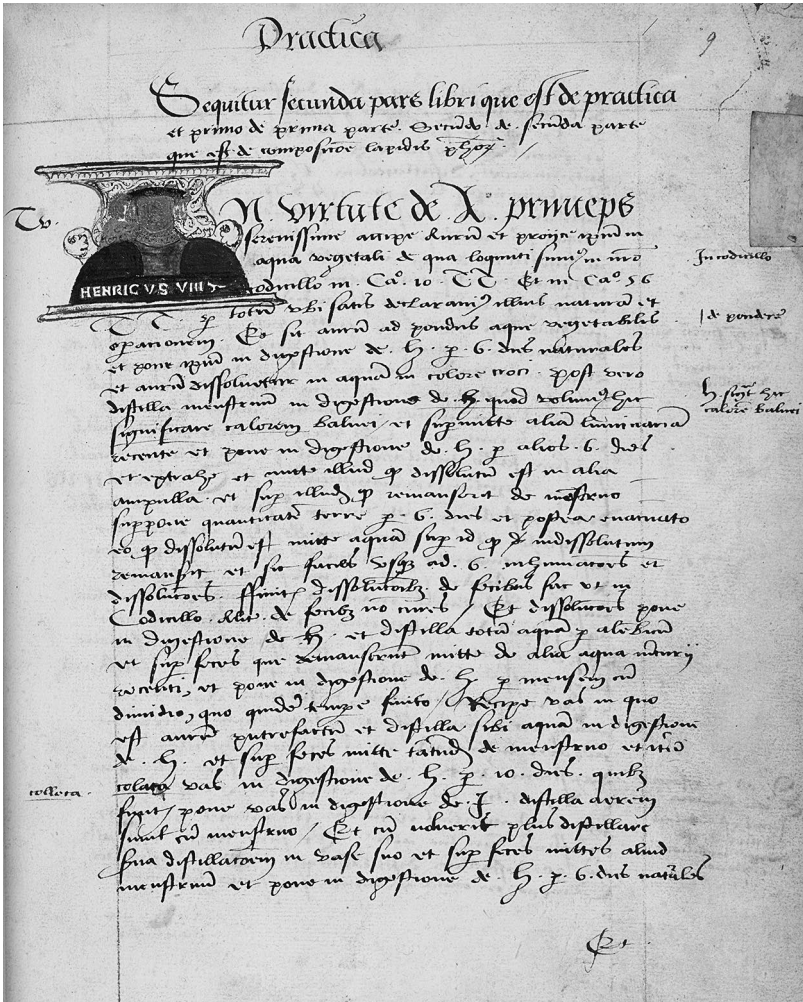 Practica
9
Sequitur secunda pars libri que est de practica
et primo de prima parte. Secundo de secunda parte
que est de composicõe lapidis
Tv.
IN. virtute de A. princeps
serenissime accipe Aurum et proiice ipsum in
aqua vegetali de qua loquuti sumus in nro
In codicillo
HENRICVS VIII
codicillo in. Ca°. 10. TT. Et in Ca°. 56
TT. p totum vbi satis declaravimus illius naturã et
operacionem. Et sit aurum ad pondus aque vegetabilis
de pondere
et pone ipsum in digestione de. h. p. 6. dies naturales
et aurum dissoluetur in aquam in colore croci. Post vero
distilla menstruum in digestione de. h. quod volumus hic
h. sigt hic
calorem balnei
significare calorem balnei / et supmitte aliam luminariam
recente et pone in digestione de. h. p alios. 6. dies.
et extrahe et mitte illud qd dissolutum est in alia
ampulla. et sup illud qd remanserit de menstruo
suppone quantitatẽ terre p. 6. dies et postea evacuato
eo qd dissolutum est mitte aquam sup id qd indissolutum
remansit et sic facies vsqz ad. 6. inhumacoẽs et
dissolucoẽs. ffinitis dissolucoibz de fecibus fac vt in
Codicillo. de fecibz no cures / Et dissolucoẽs pone
in digestione de. h. et distilla totam aquam p alẽbicum
et sup feces que remanserunt mitte de alia aqua
recenti, et pone in digestione de. h. p mensem cũ
dimidio, quo quidẽ tempe finito / Recipe vas in quo
est aurum putrefactum et distilla sibi aquam in digestione
de. h. et sup feces mitte tantũdẽ de menstruo et
colleca.
vas in digestione de. h. p. 10. dies. quibz
finitis pone vas in digestione de. I. distilla aerem
simul cũ menstruo / Et cũ noluerit plus distillare
distillacoẽm in vase suo et sup feces mittes aliud
menstruum et pone in digestione de. h. p. 6. dies natrales
Et